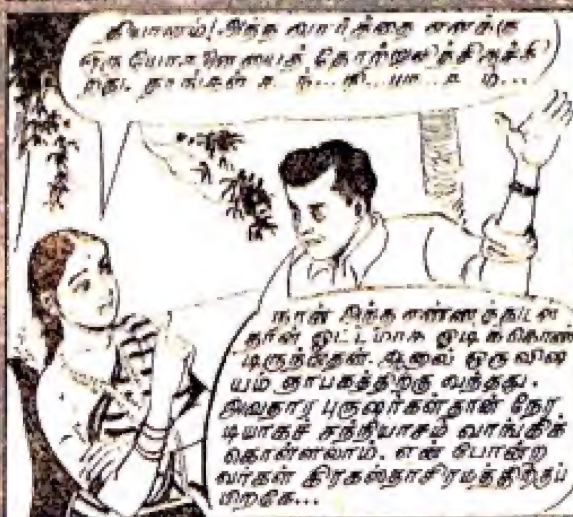 தியாகம்! அந்த வார்த்தை எனக்கு
ஒரு யோசனையைத் தோற்றுவித்திருக்கி
றது. தாங்கள்
நான் அந்த எண்ணத்துடன்
தான் ஓட்டமாக ஓடிக்கொண்
டிருந்தேன். ஆனால் ஒரு விஷ
யம் ஞாபகத்திற்கு வந்தது.
அவதார புருஷர்கள்தான் நேர
டியாகச் சந்நியாசம் வாங்கிக்
கொள்ளலாம். என் போன்ற
வர்கள் கிரகஸ்தாசிரமத்திற்குப்
பிறகே...